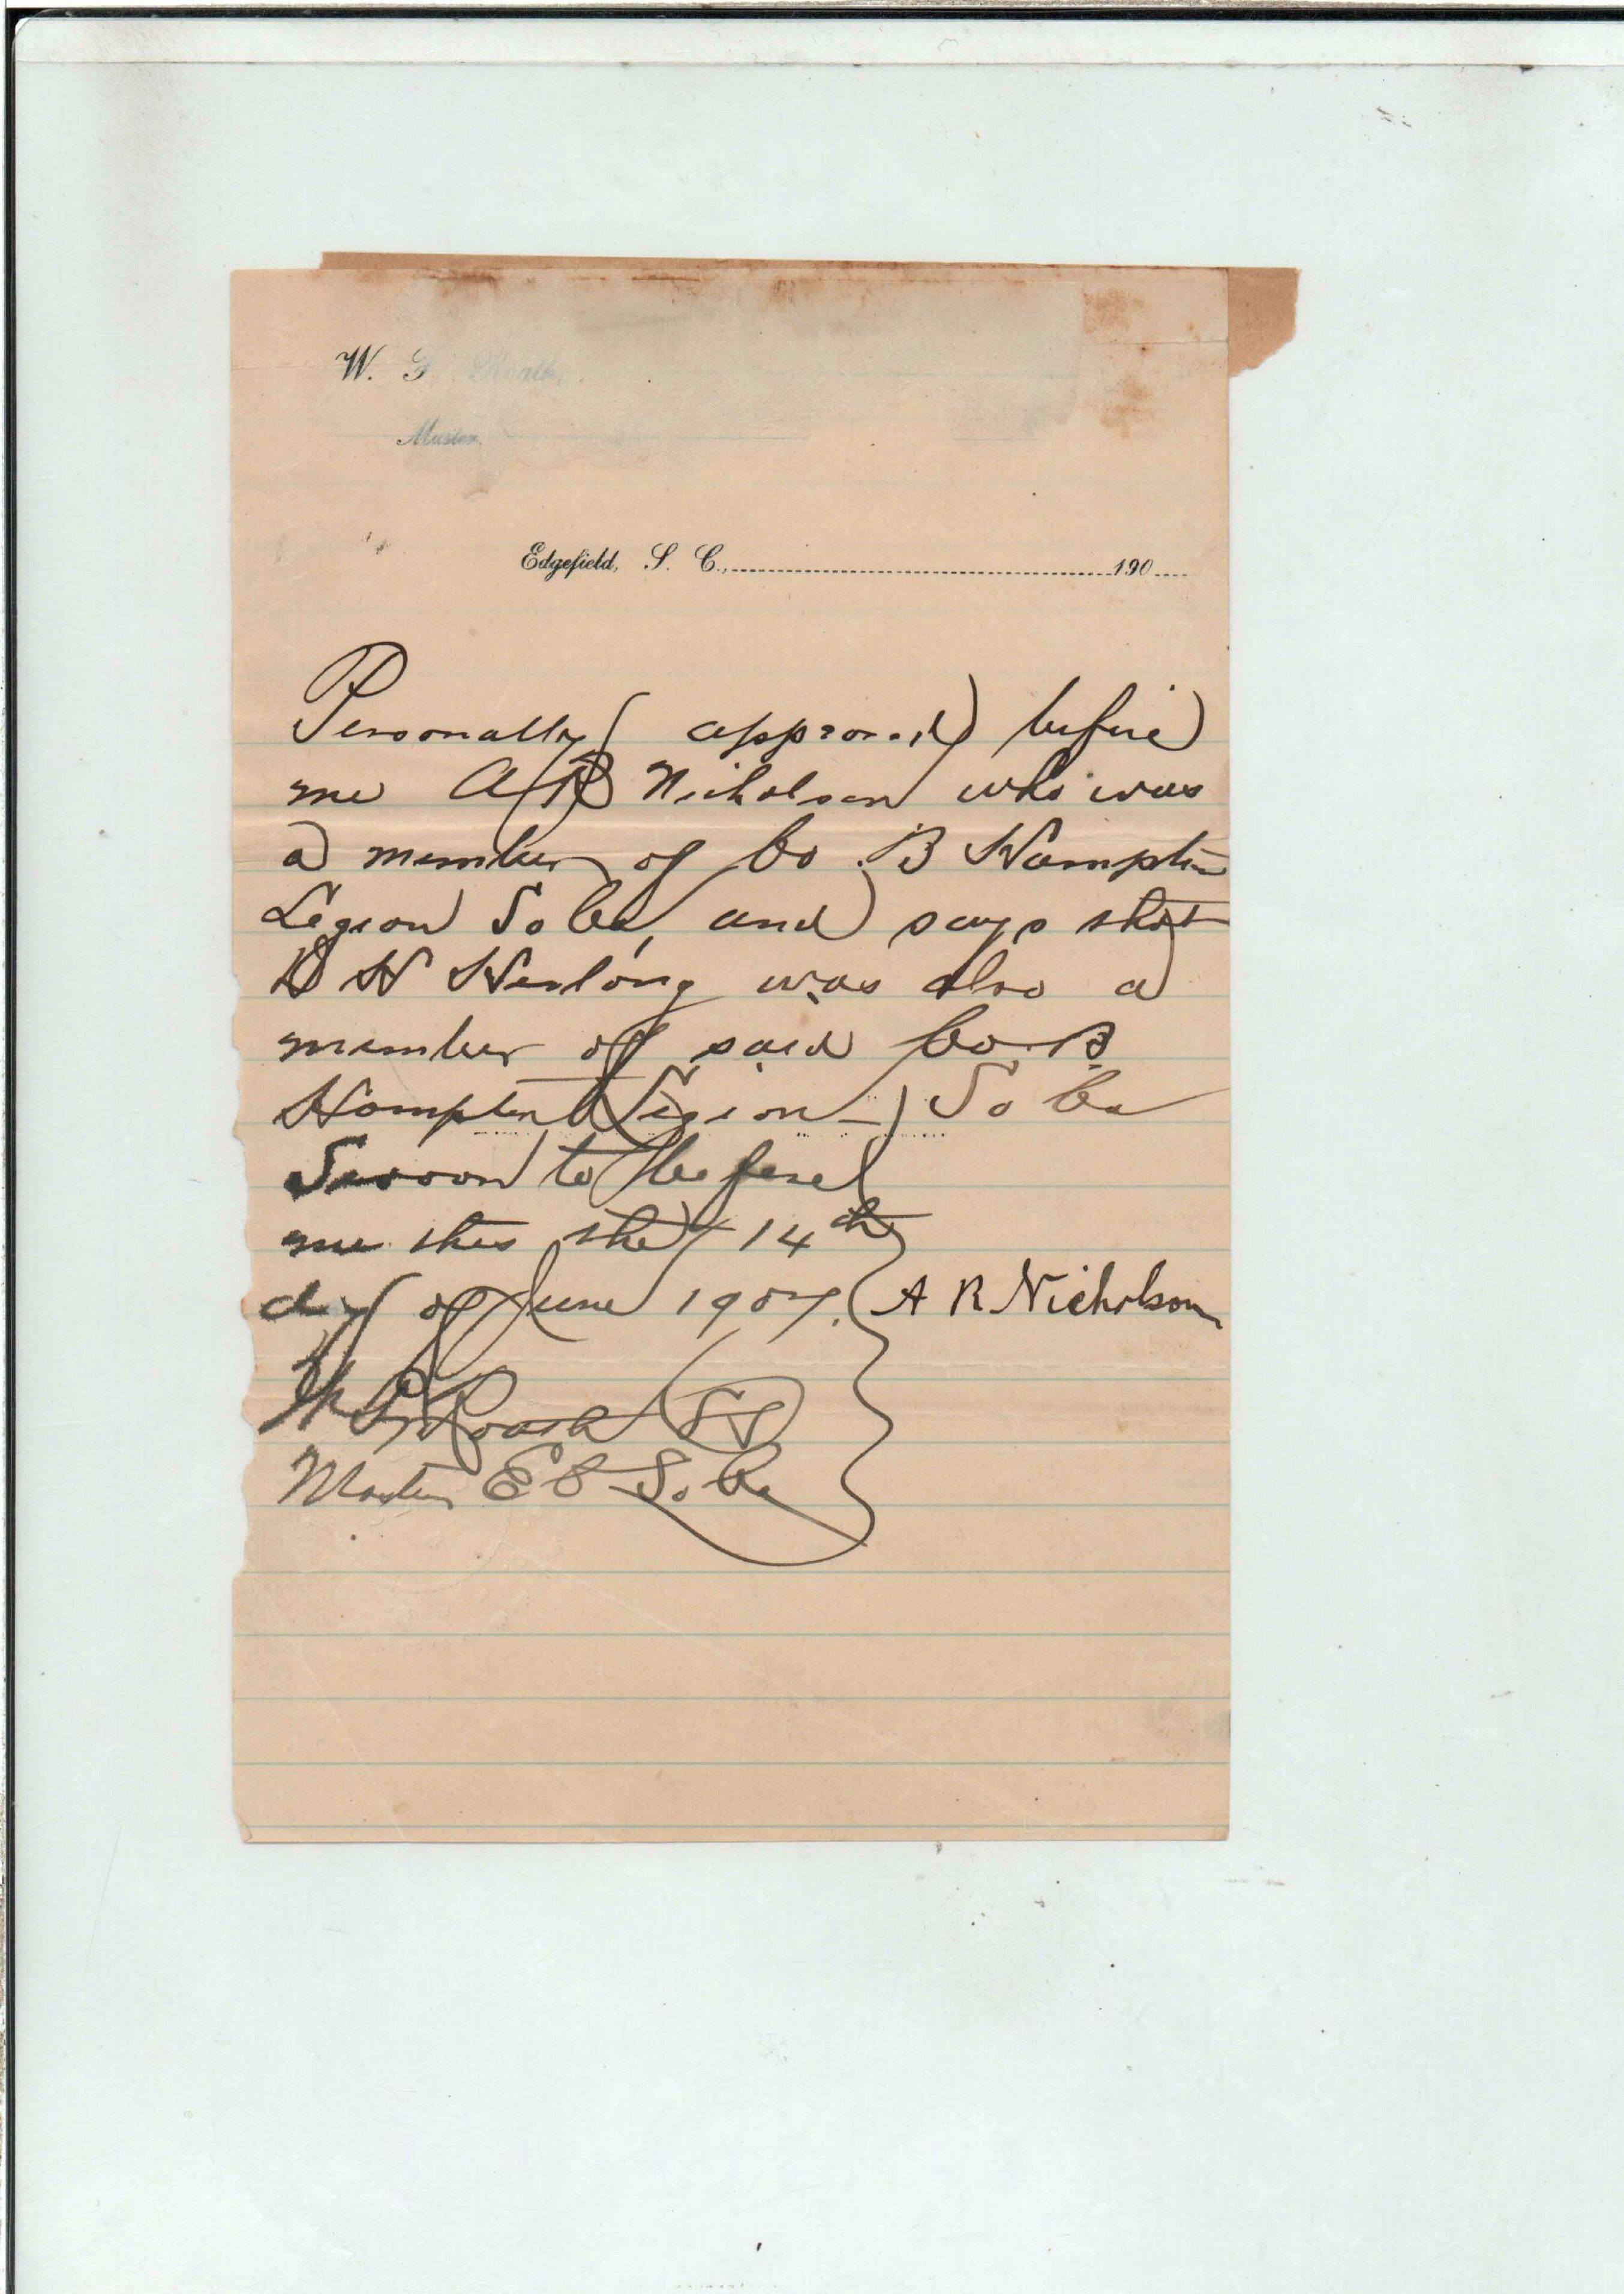 W. F. Roath,
Master.
Edgefield, S. C., 190
Personally appeared before
me A R Nicholson who was
a member of Co. B Hampton
Legion So Ca, and says that
D H Herlong was also a
member of said Co. B
Hampton Legion - So Ca
Sworn to before
me this the 14th
day of June 1907. A R Nicholson
W F Roath LS
Master E C So. Ca